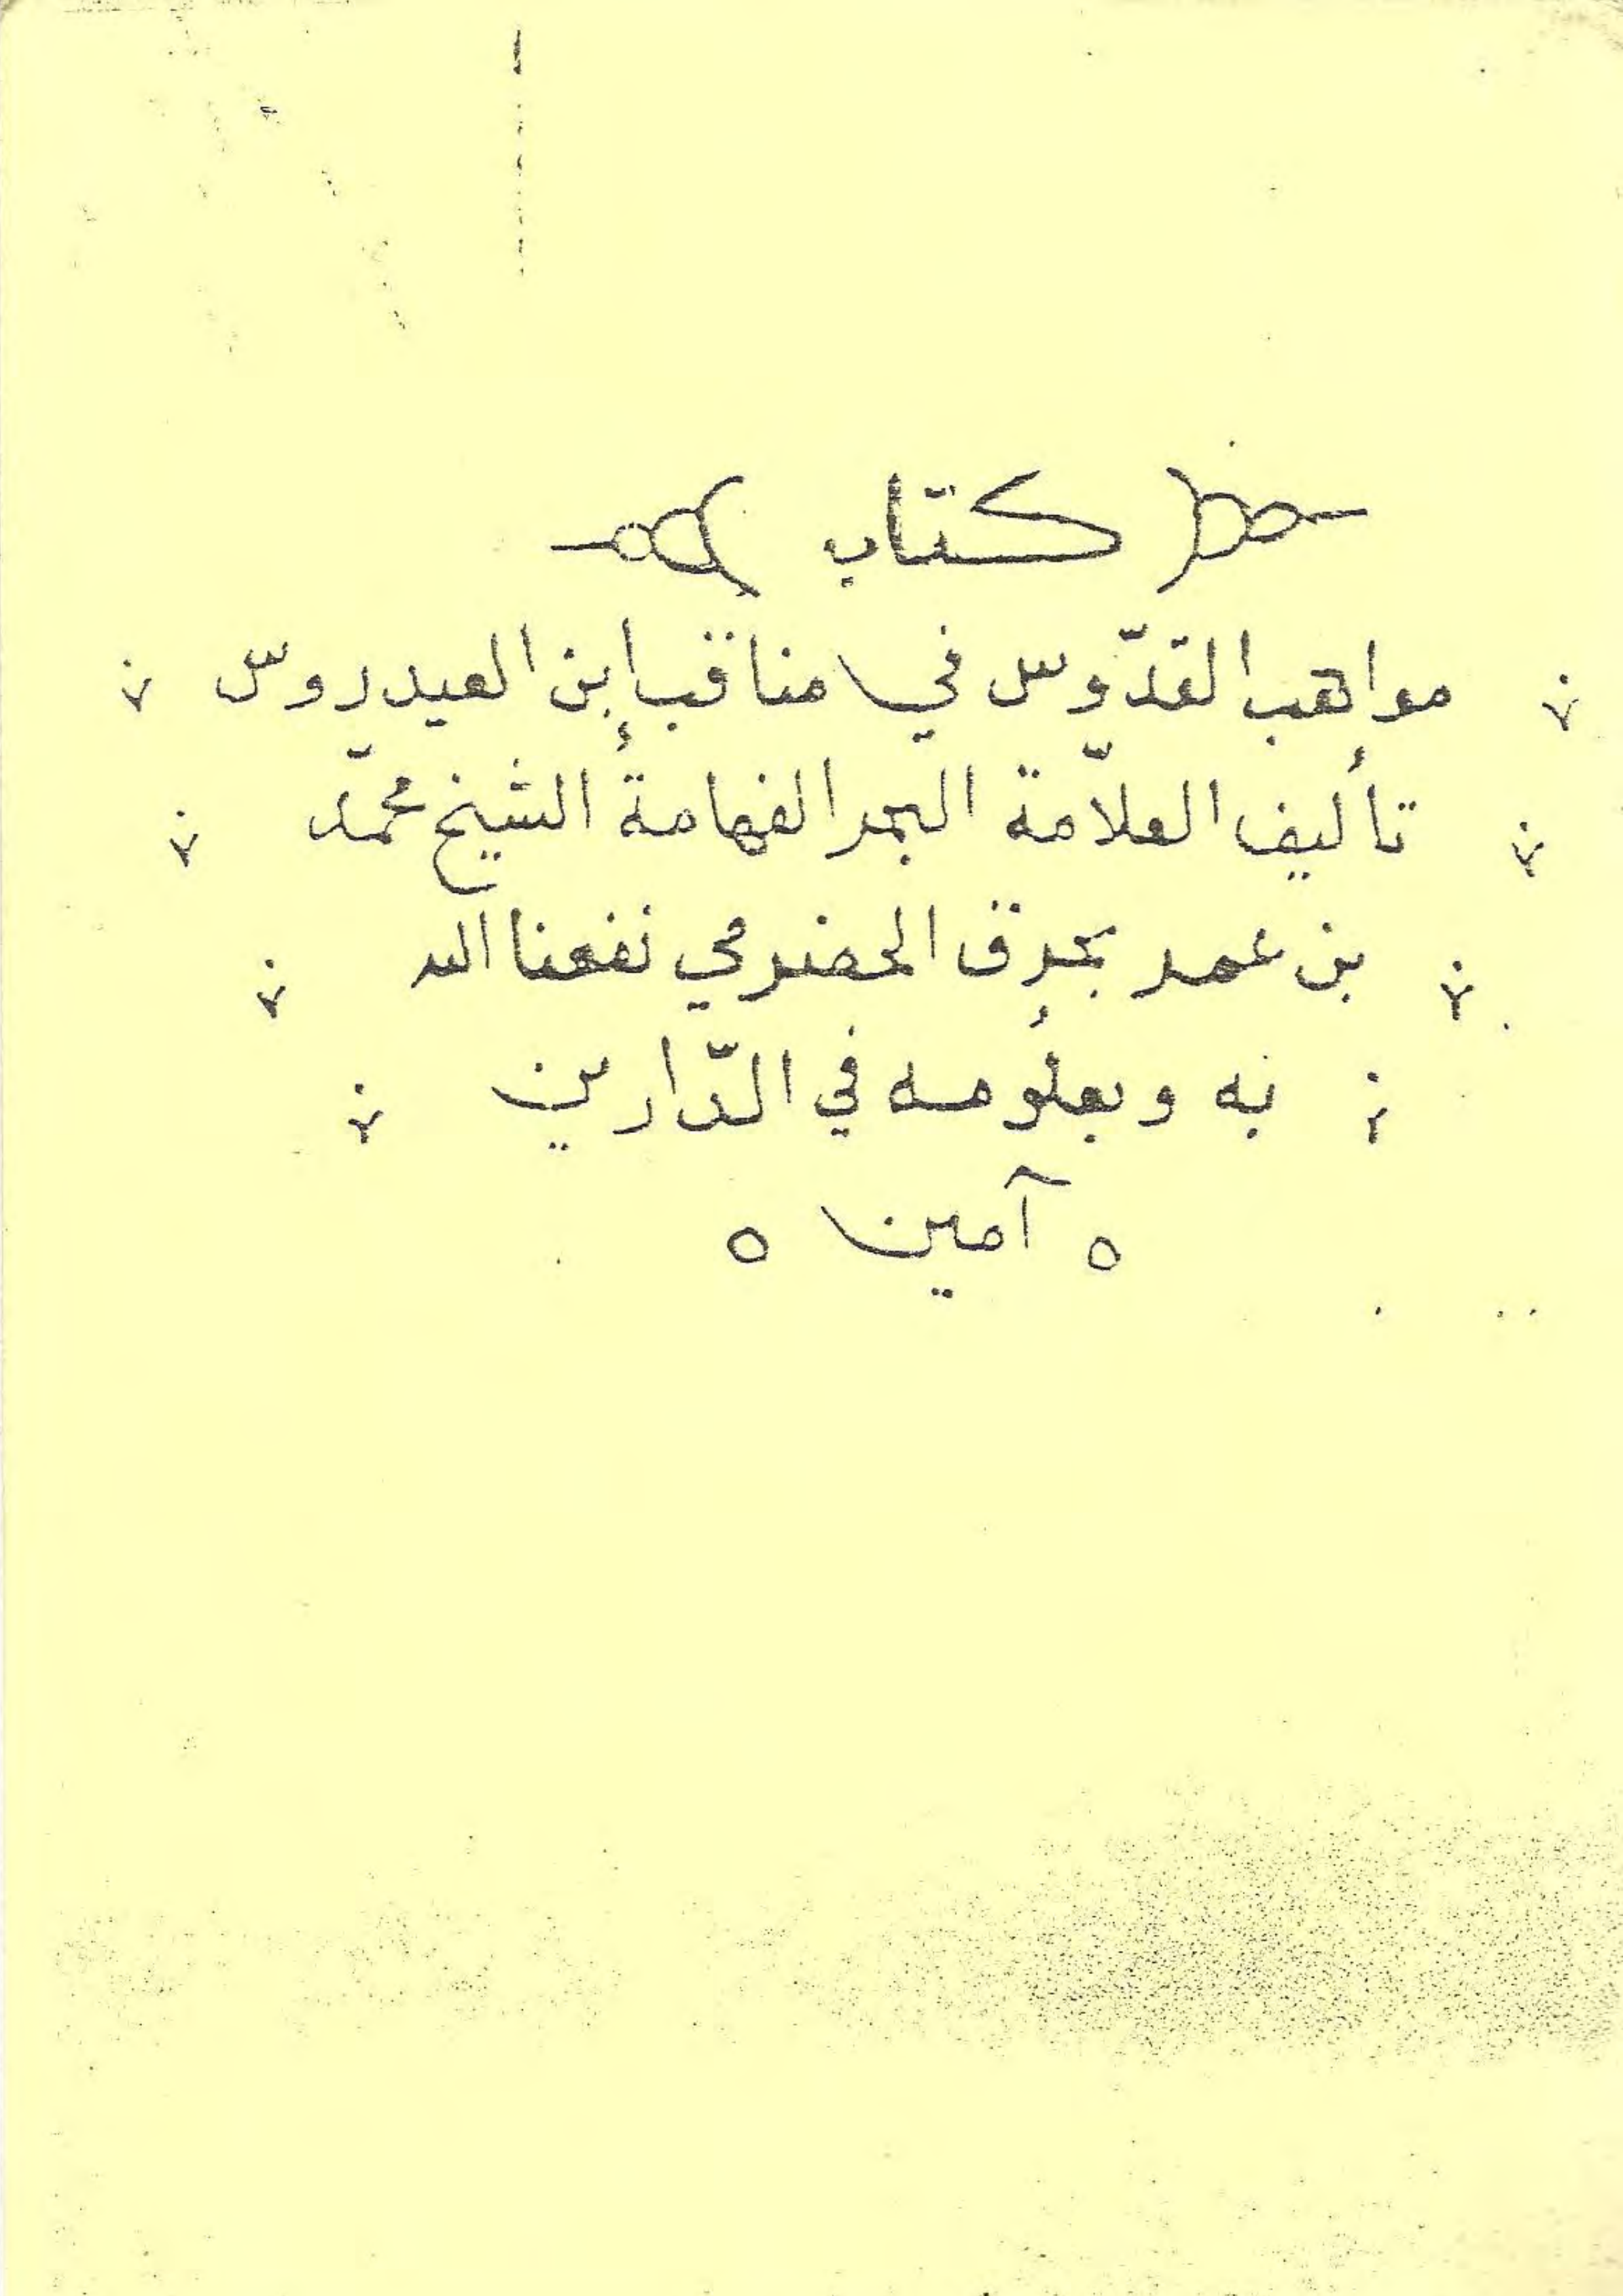 كتاب
مواهب القدّوس في مناقب إبن العيدروس
تأليف العلاّمة البحر الفهامة الشيخ محمّد
بن عمر بحرق الحضرمي نفعنا الله
به وبعلومه في الدّارين
آمين